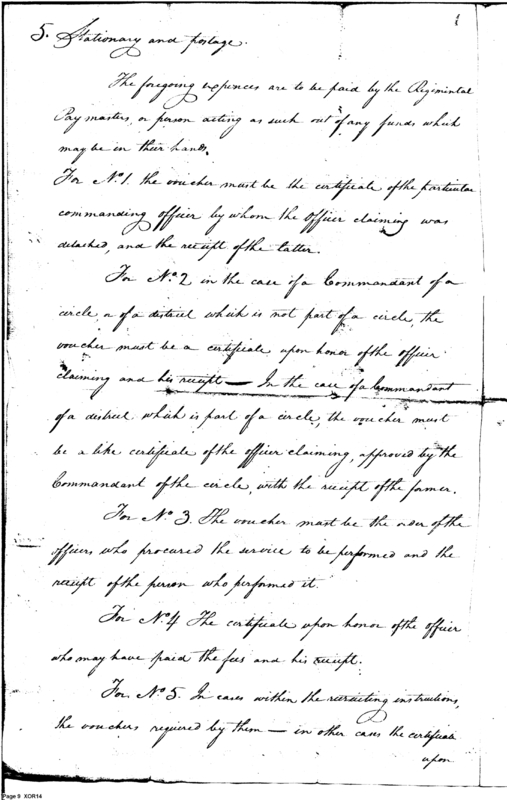 5. Stationary and postage.
The foregoing expences are to be paid by the Regimental
Paymasters, or person acting as such out of any funds which
may be in their hands.
For No. 1. the voucher must be the certificate of the particular
commanding officer by whom the officer claiming was
detached, and the receipt of the latter.
For No. 2 in the case of a Commandant of a
circle, or of a district which is not part of a circle, the
voucher must be a certificate upon honor of the officer
claiming and his receipt — In the case of a Commandant
of a district which is part of a circle, the voucher must
be a like certificate of the officer claiming, approved by the
Commandant of the circle, with the receipt of the former.
For No. 3. The voucher must be the order of the
officers who procured the service to be performed and the
receipt of the person who performed it.
For No. 4 The certificate upon honor of the officer
who may have paid the fees and his receipt.
For No. 5. In cases within the recruiting instructions,
the vouchers required by them — in other cases the certificate
upon
Page 8 XOR14